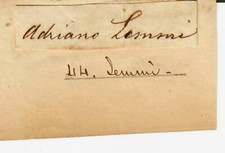 Adriano Lemmi
44. Lemmi -